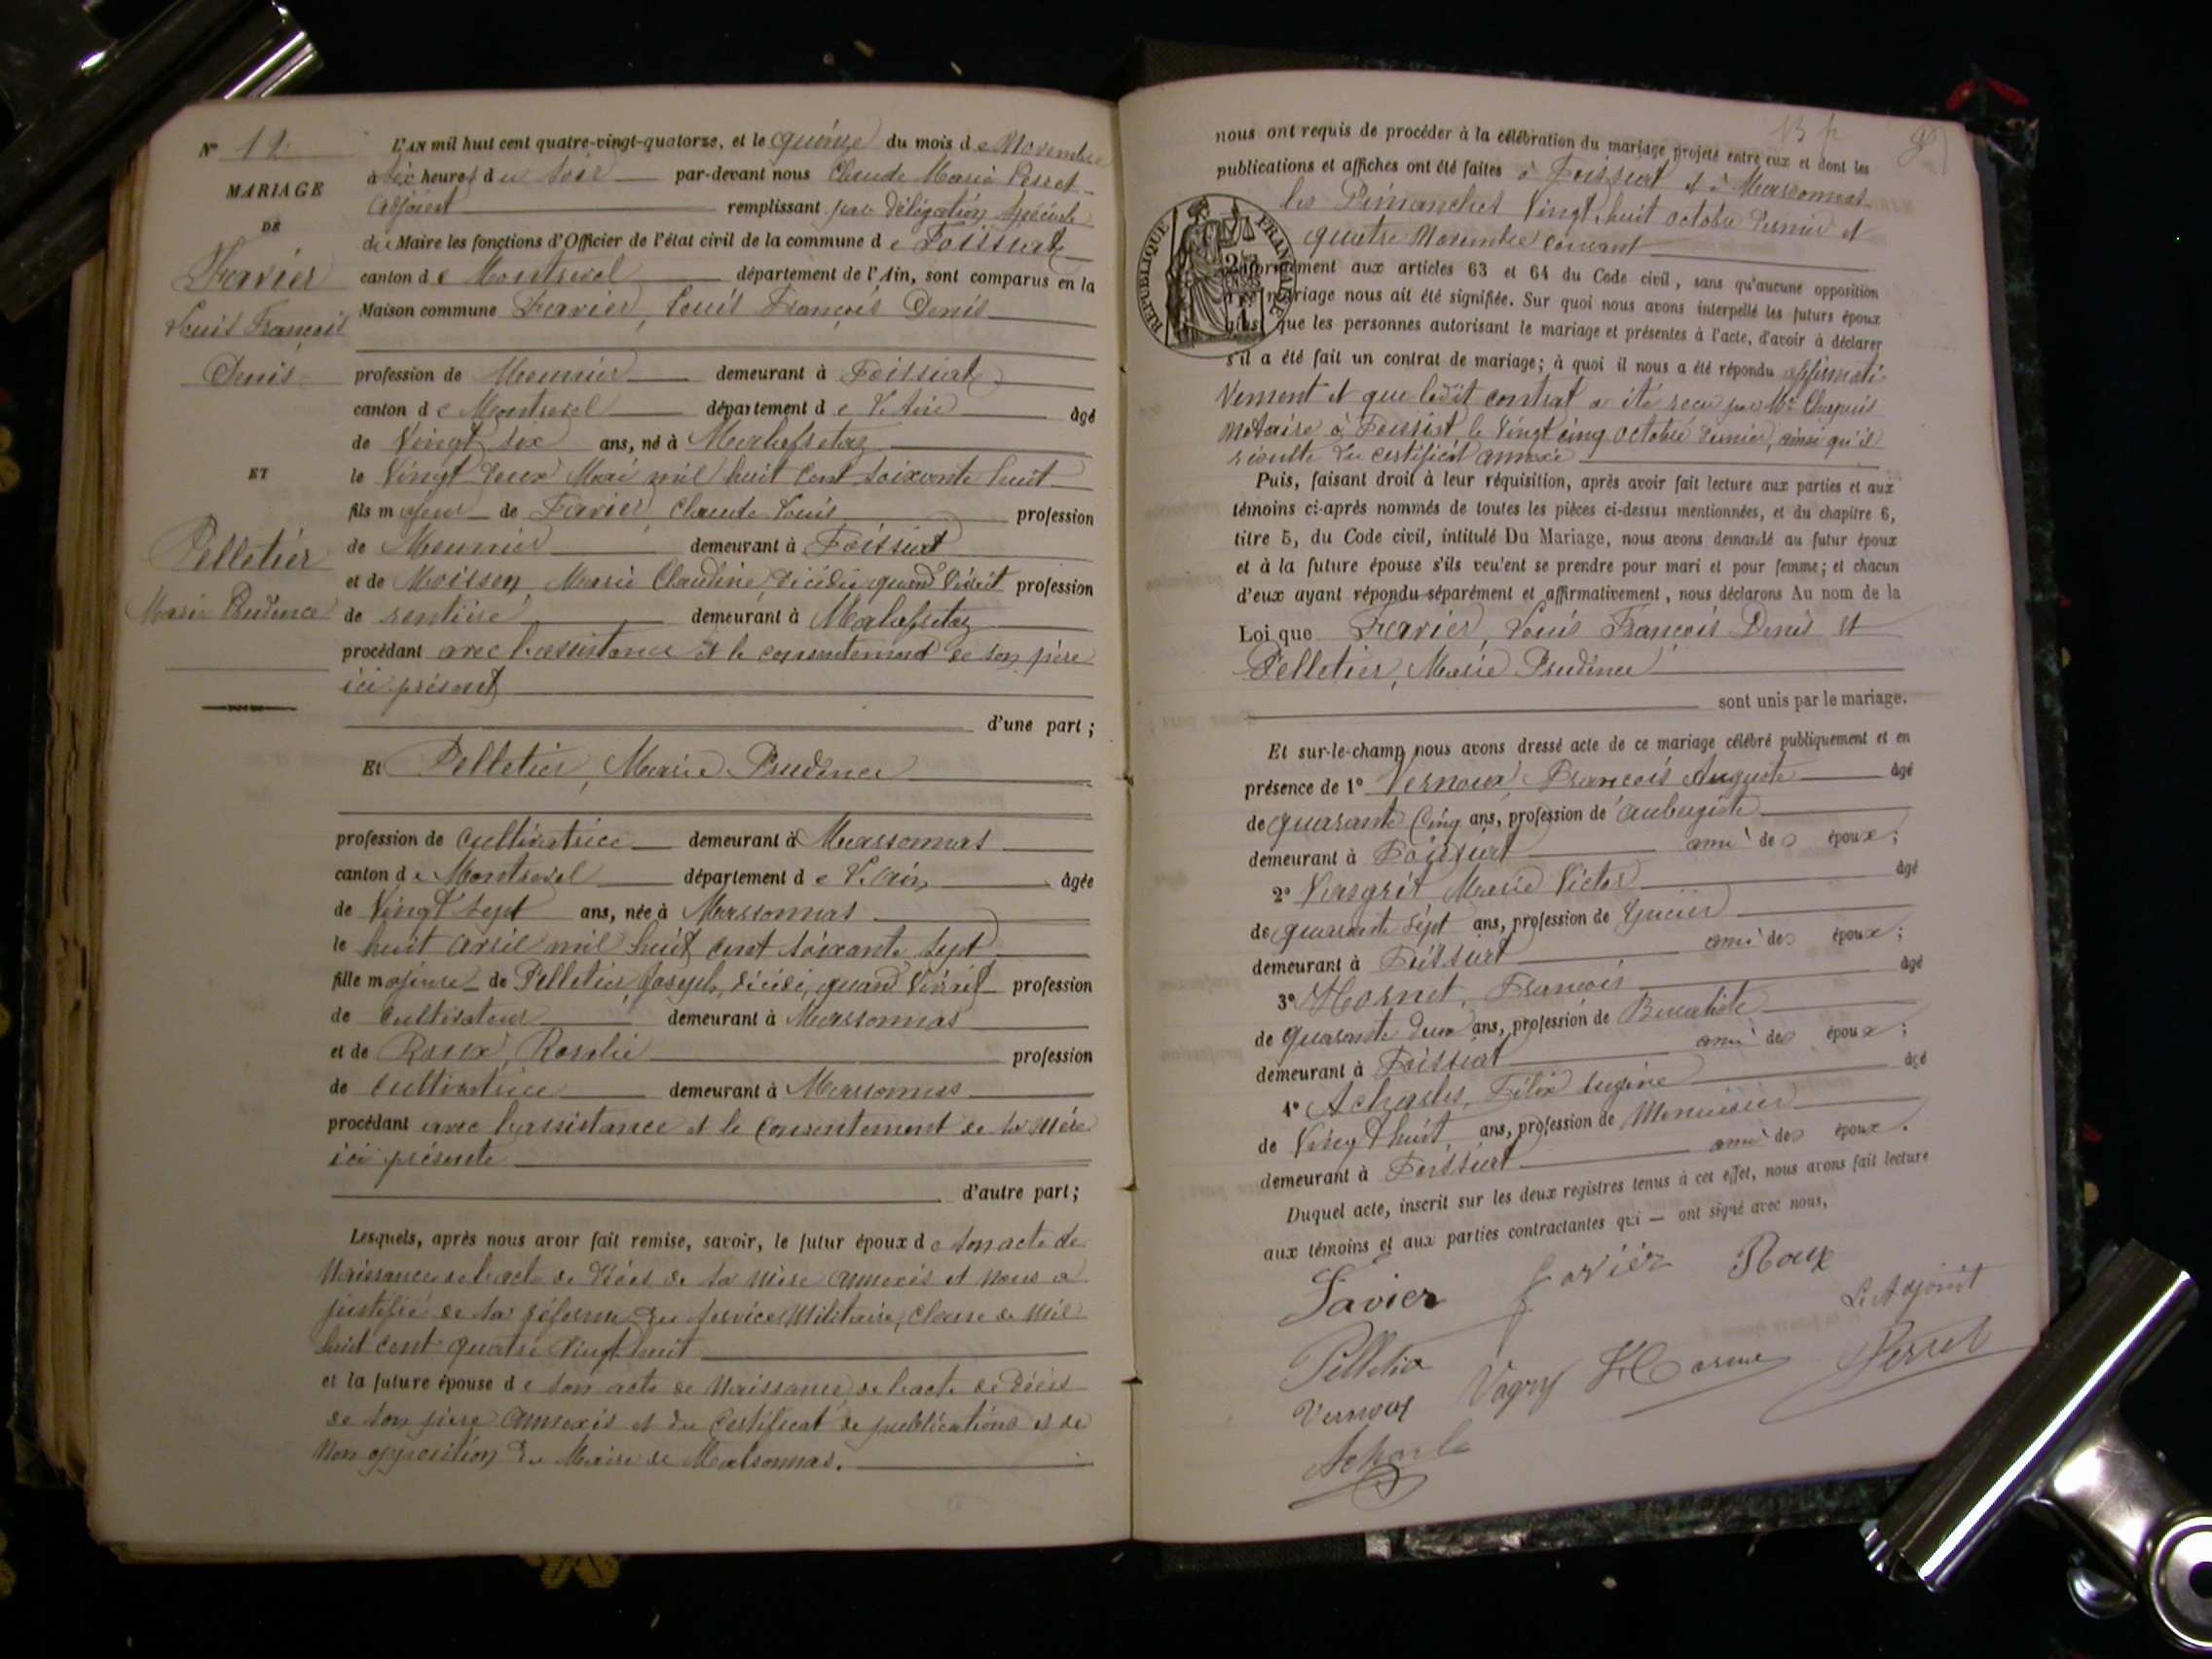 N° 12
MARIAGE
DE
Favier
Louis François
Denis
ET
Pelletier
Marie Prudence
L'AN mil huit cent quatre-vingt-quatorze, et le quinze du mois de Novembre
à six heures du soir par-devant nous Claude Marie Perret
adjoint remplissant par délégation spéciale
du Maire les fonctions d'Officier de l'état civil de la commune de Foissiat
canton de Montrevel département de l'Ain, sont comparus en la
Maison commune Favier, Louis François Denis
profession de Meunier demeurant à Foissiat
canton de Montrevel département de l'Ain âgé
de Vingt six ans, né à Malafretaz
le Vingt deux Mai mil huit cent soixante huit
fils majeur de Favier Claude Louis profession
de Meunier demeurant à Foissiat
et de Moisson, Marie Claudine, décédée, quand vivait profession
de rentière demeurant à Malafretaz
procédant avec l'assistance et le consentement de son père
ici présent
d'une part ;
Et Pelletier, Marie Prudence
profession de cultivatrice demeurant à Marsonnas
canton de Montrevel département de l'Ain âgée
de Vingt sept ans, née à Marsonnas
le huit avril mil huit cent soixante sept
fille majeure de Pelletier Joseph, décédé, quand vivait profession
de cultivateur demeurant à Marsonnas
et de Roux, Rosalie profession
de cultivatrice demeurant à Marsonnas
procédant avec l'assistance et le consentement de sa mère
ici présente
d'autre part ;
Lesquels, après nous avoir fait remise, savoir, le futur époux de son acte de
Naissance, de l'acte de décès de sa mère annexés et nous a
justifié de sa réforme du service Militaire, classe de mil
huit cent quatre vingt huit
et la future épouse de son acte de Naissance, de l'acte de décès
de son père annexés et du certificat de publications et de
Non opposition du Maire de Marsonnas.
nous ont requis de procéder à la célébration du mariage projeté entre eux et dont les
publications et affiches ont été faites à Foissiat et à Marsonnas
les Dimanches Vingt-huit octobre dernier et
quatre Novembre courant
RÉPUBLIQUE FRANÇAISE
conformément aux articles 63 et 64 du Code civil, sans qu'aucune opposition
mariage nous ait été signifiée. Sur quoi nous avons interpellé les futurs époux
ainsi que les personnes autorisant le mariage et présentes à l'acte, d'avoir à déclarer
s'il a été fait un contrat de mariage ; à quoi il nous a été répondu affirmati-
vement et que ledit contrat a été reçu par Me Chapuis
notaire à Foissiat le Vingt cinq octobre dernier, ainsi qu'il
résulte du certificat annexé
Puis, faisant droit à leur réquisition, après avoir fait lecture aux parties et aux
témoins ci-après nommés de toutes les pièces ci-dessus mentionnées, et du chapitre 6,
titre 5, du Code civil, intitulé Du Mariage, nous avons demandé au futur époux
et à la future épouse s'ils veulent se prendre pour mari et pour femme ; et chacun
d'eux ayant répondu séparément et affirmativement, nous déclarons Au nom de la
Loi que Favier, Louis François Denis et
Pelletier, Marie Prudence
sont unis par le mariage.
Et sur-le-champ nous avons dressé acte de ce mariage célébré publiquement et en
présence de 1° Vernoux, François Auguste âgé
de quarante cinq ans, profession de aubergiste
demeurant à Foissiat ami des époux ;
2° Marie Victor âgé
de quarante sept ans, profession de Épicier
demeurant à Foissiat ami des époux ;
3° François âgé
de quarante deux ans, profession de Buraliste
demeurant à Foissiat ami des époux ;
4° Félix Eugène âgé
de Vingt huit ans, profession de Menuisier
demeurant à Foissiat ami des époux.
Duquel acte, inscrit sur les deux registres tenus à cet effet, nous avons fait lecture
aux témoins et aux parties contractantes qui — ont signé avec nous,
Favier favier Roux
L'Adjoint
Pelletier
Vernoux Perret